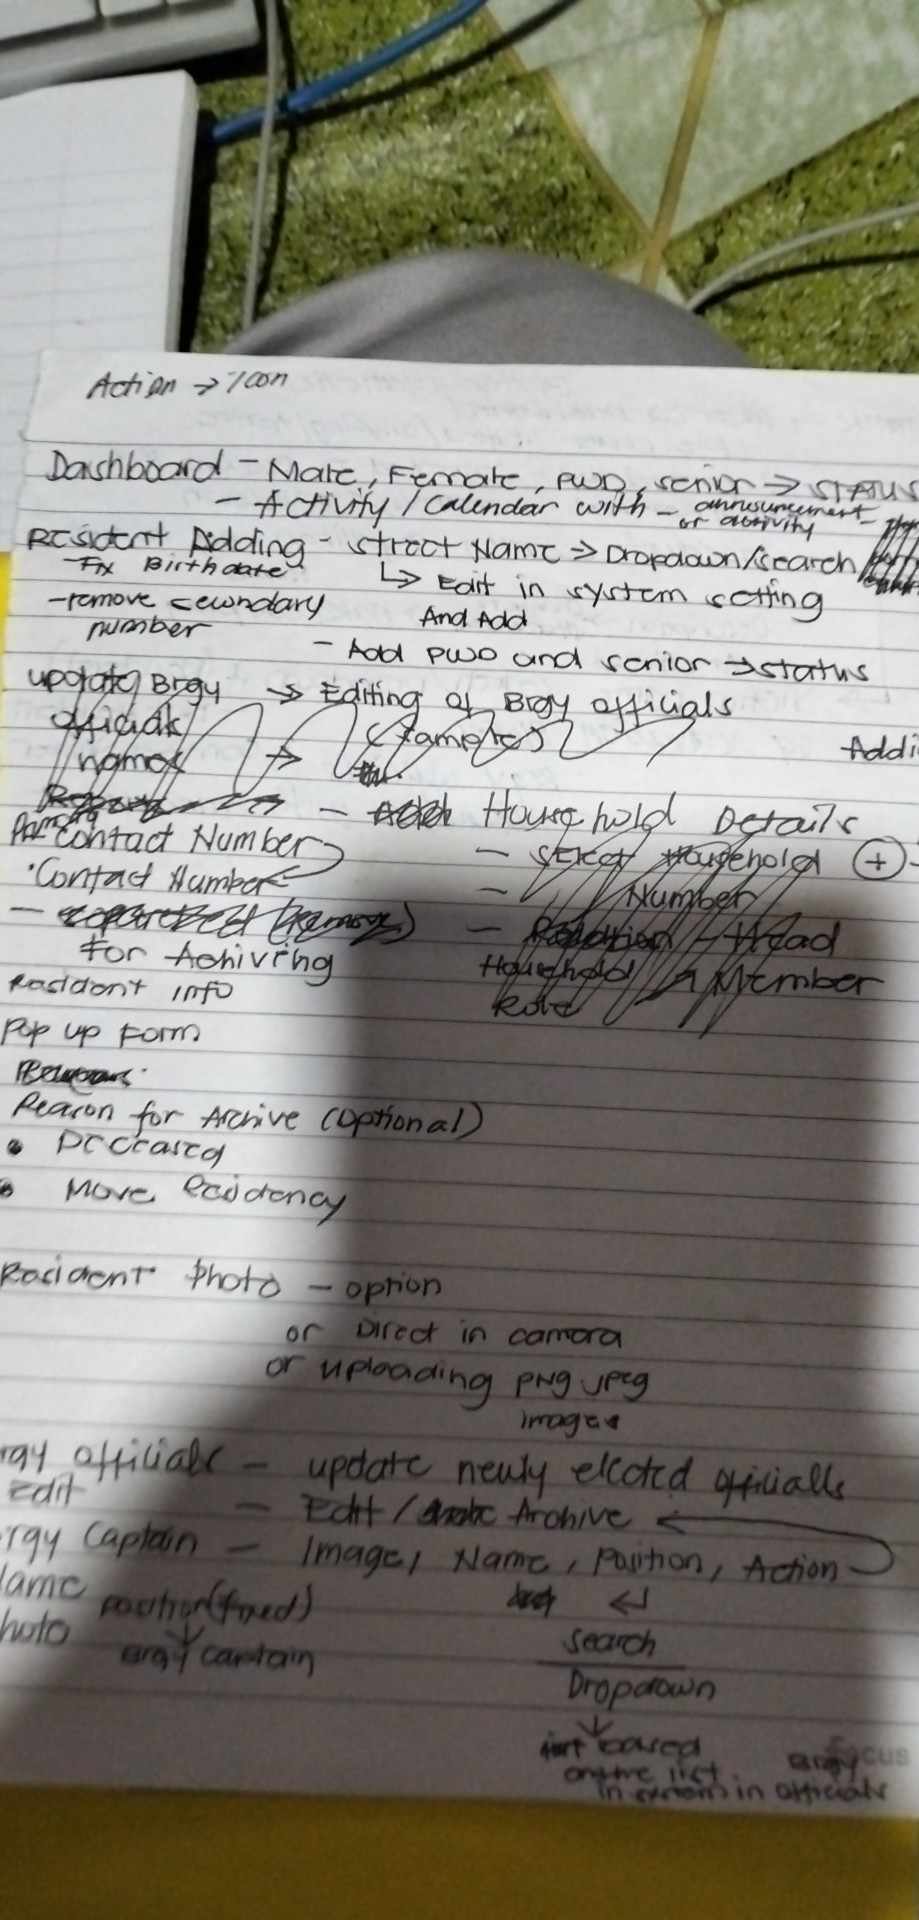 Action → Icon
Dashboard - Male, Female, PWD, senior → STATUS
- Activity / Calendar with - announcement or activity
Resident Adding - street Name → Dropdown/search
Fix Birthdate
↳ Edit in system setting
And Add
- remove secondary number
- Add PWD and senior → status
update Brgy → Editing of Brgy officials
officials
names →
(Example)
Addi
- Household Details
Contact Number
- Select Household +
· Contact Number
- Number
- Head
For Achiving
Household Member
Role
Resident info
Pop up Form
Reason for Archive (Optional)
• Deceased
• Move Residency
Resident Photo - option
or Direct in camera
or uploading PNG JPEG
images
rgy officials - update newly elected officialls
Edit
- Edit / Archive
rgy Captain - Image, Name, Position, Action
ame position (fixed)
hoto
Brgy Captain
search
Dropdown
based
on the list
in system in Brgy officials